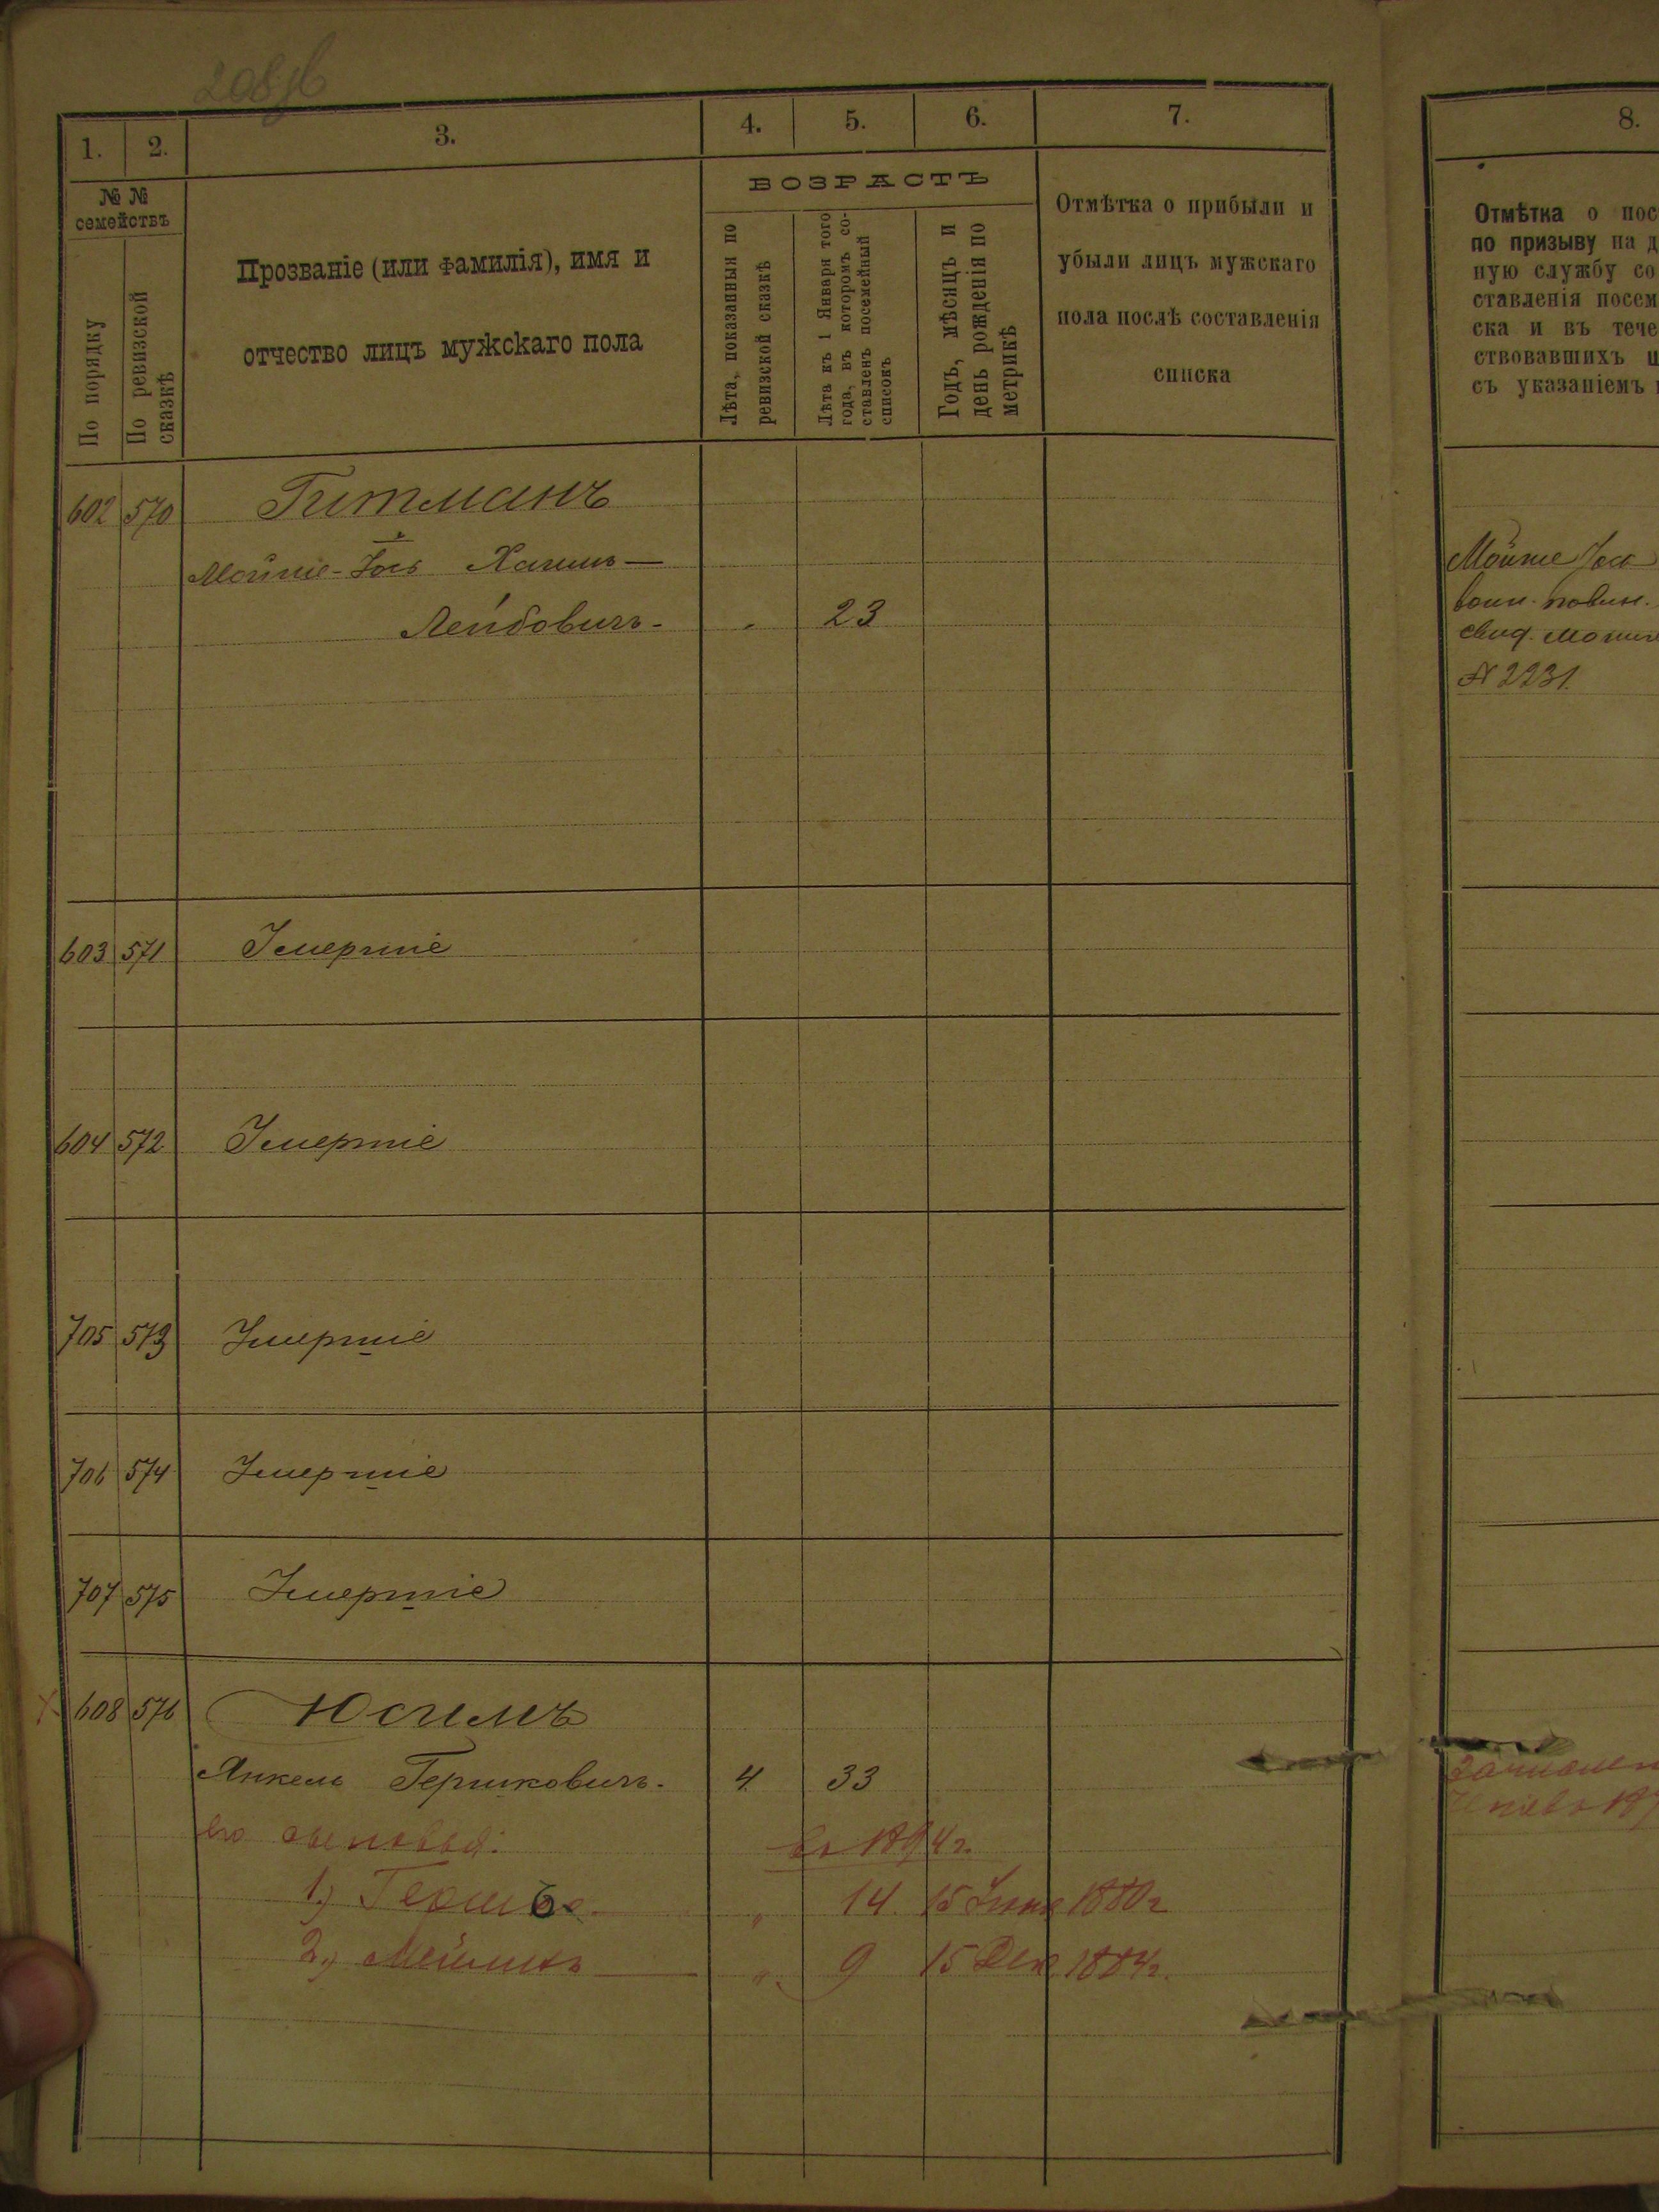 208об
1. 2. 3. 4. 5. 6. 7.
№ №
семействъ
По порядку
По ревизской
сказкѣ
Прозваніе (или фамилія), имя и
отчество лицъ мужскаго пола
ВОЗРАСТЪ
Лѣта, показанныя по
ревизской сказкѣ
Лѣта къ 1 Января того
года, въ которомъ со-
ставленъ посемейный
списокъ
Годъ, мѣсяцъ и
день рожденія по
метрикѣ
Отмѣтка о прибыли и
убыли лицъ мужскаго
пола послѣ составленія
списка
602 570 Гитманъ
Мойше-Іось Хаимъ-
Лейбовичъ. 23
603 571 Умершіе
604 572 Умершіе
705 573 Умершіе
706 574 Умершіе
707 575 Умершіе
608 576 Юсимъ
Янкель Гершковичъ. 4. 33
его сыновья: въ 1894 г.
1.) Гершъ 14. 15 Іюня 1880 г
2.) 9 15 Дек. 1884 г.
8.
Отмѣтка о пос
по призыву на д
ную службу со
ставленія посем
ска и въ тече
ствовавшихъ
съ указаніемъ
Мойше Іось
воин. повин.
свид.
№ 2231.